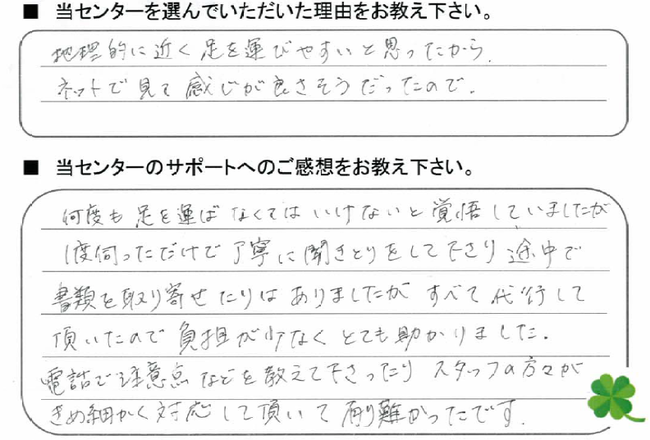 ■ 当センターを選んでいただいた理由をお教え下さい。
地理的に近く足を運びやすいと思ったから.
ネットで見て感じが良さそうだったので.
■ 当センターのサポートへのご感想をお教え下さい。
何度も足を運ばなくてはいけないと覚悟していましたが
1度伺っただけで丁寧に聞きとりをして下さり途中で
書類を取り寄せたりはありましたがすべて代行して
頂いたので負担が少なくとても助かりました.
電話で注意点などを教えて下さったりスタッフの方々が
きめ細かく対応して頂いて有り難かったです.